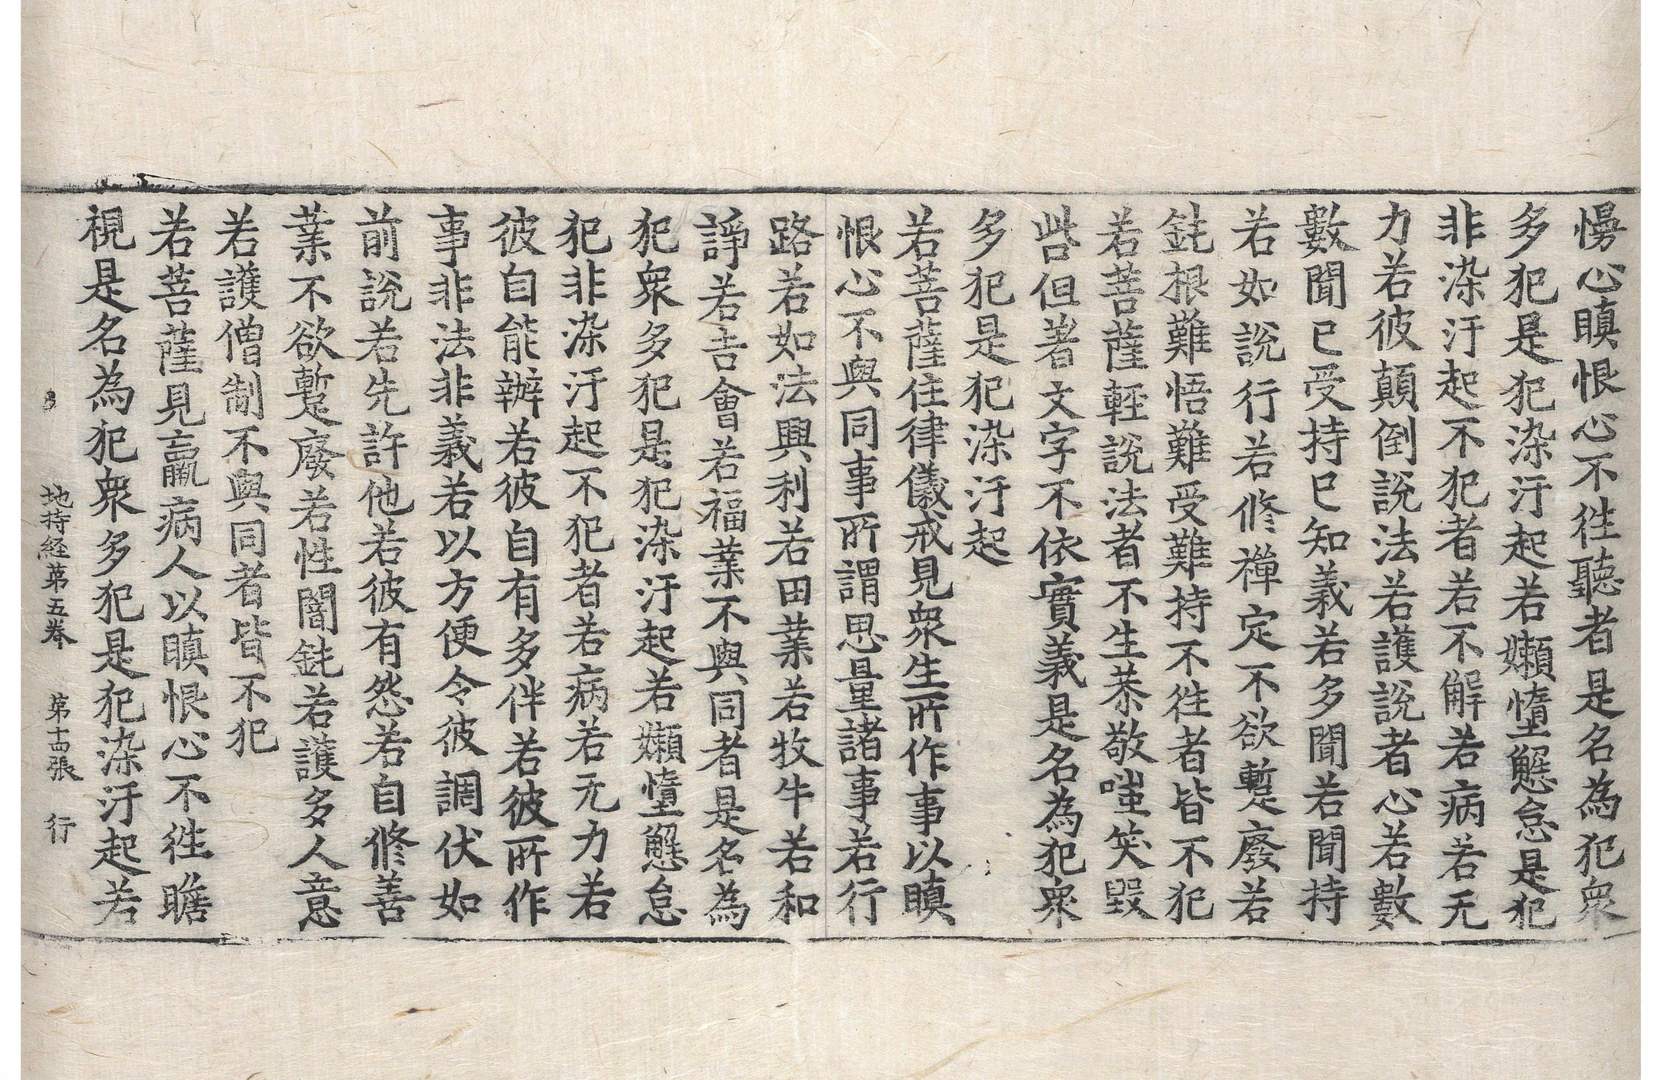 慢心瞋恨心不徃聽者是名為犯衆
多犯是犯染汙起若嬾墮懈怠是犯
非染汙起不犯者若不解若病若无
力若彼顛倒說法若護說者心若數
數聞已受持已知義若多聞若聞持
若如說行若修禪定不欲蹔廢若
鈍根難悟難受難持不徃者皆不犯
若菩薩輕說法者不生恭敬嗤笑毀
呰但著文字不依實義是名為犯衆
多犯是犯染汙起
若菩薩住律儀戒見衆生所作事以瞋
恨心不與同事所謂思量諸事若行
路若如法興利若田業若牧牛若和
諍若吉會若福業不與同者是名為
犯衆多犯是犯染汙起若嬾墮懈怠
犯非染汙起不犯者若病若无力若
彼自能辦若彼自有多伴若彼所作
事非法非義若以方便令彼調伏如
前說若先許他若彼有怨若自修善
業不欲蹔廢若性闇鈍若護多人意
若護僧制不與同者皆不犯
若菩薩見羸病人以瞋恨心不徃瞻
視是名為犯衆多犯是犯染汙起若
地持経第五巻 第十四張 行